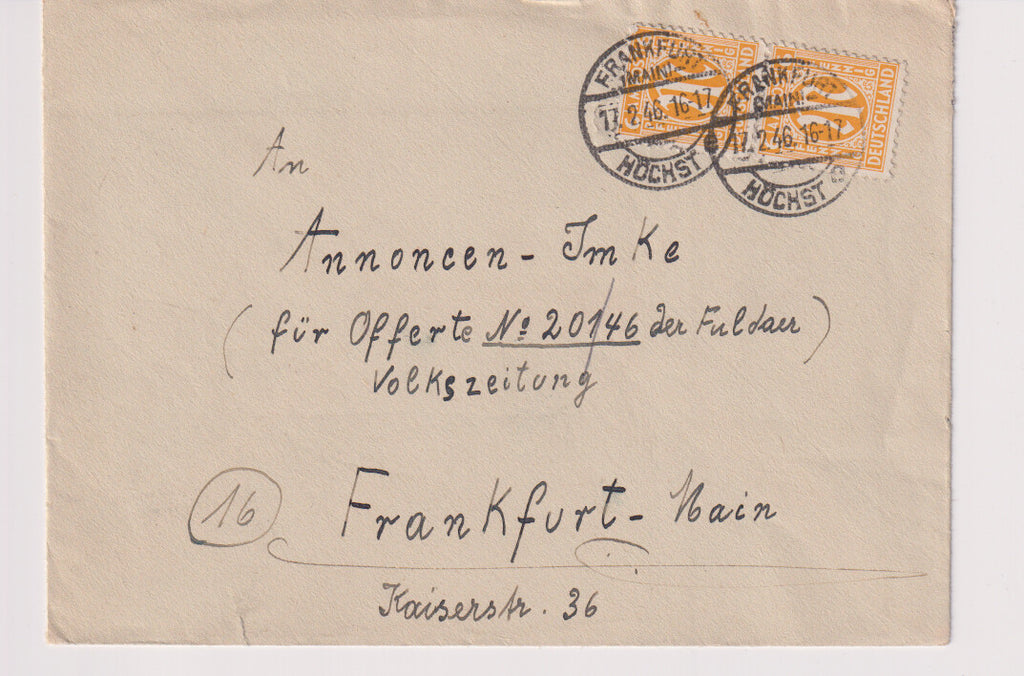 FRANKFURT
(MAIN)
17.2.46.16-17
HÖCHST
e
FRANKFURT
(MAIN)
17.2.46.16-17
HÖCHST
e
DEUTSCHLAND
An
Annoncen - Imke
(für Offerte No 20/46 der Fuldaer)
Volkszeitung
16
Frankfurt - Main
Kaiserstr. 36